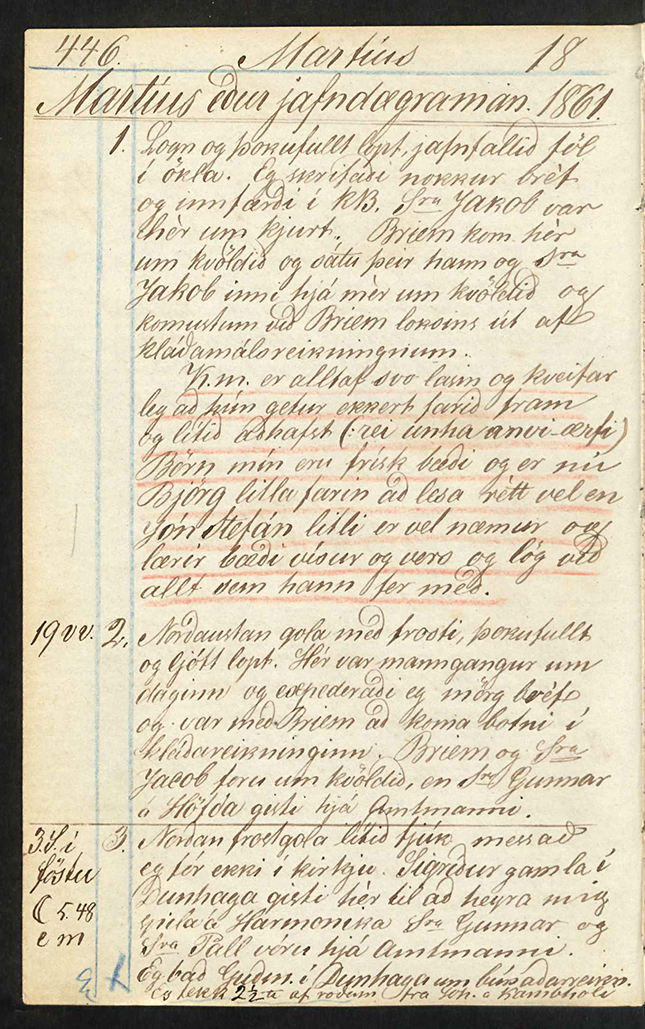 446. Martíus 18
Martíus eður jafndægramán. 1861.
1. Logn og þokufullt lopt, jafnfallið föl
í ökla. Eg skrifaði nokkur bréf
og innfærði í KB. Sra Jakob var
hér um kjurt. Briem kom hér
um kvöldið og sátu þeir hann og Sra
Jakob inni hjá mér um kvöldið og
komustum við Briem loksins út af
kláðamálsreikningnum.
K.m. er alltaf svo lasin og kveifar
leg að hún getur ekkert farið fram
og lítið aðhafst
Börn mín eru frísk bæði og er nú
Björg litla farin að lesa rétt vel en
Jón Stefán litli er vel næmur og
lærir bæði vísur og vers og lög við
allt sem hann fer með.
19 vv. 2. Norðaustan gola með frosti, þokufullt
og ljótt lopt. Hér var manngangur um
daginn og expederaði eg mörg bréf
og var með Briem að koma botni í
kláðareikninginn. Briem og Sra
Jacob foru um kvöldið, en Sra Gunnar
á Höfða gisti hjá Amtmanni.
3. S. í 3. Norðan frostgola lítið fjúk messað
föstu eg fór ekki í kirkju. Sigríður gamla í
Dunhaga gisti hér til að heyra mig
☾ 5.48 spila á Harmonika Sra Gunnar og
e m Sra Páll vóru hjá Amtmanni.
Eg bað Guðm. í Dunhaga um
Eg fekk af frá Joh. á Kambhóli